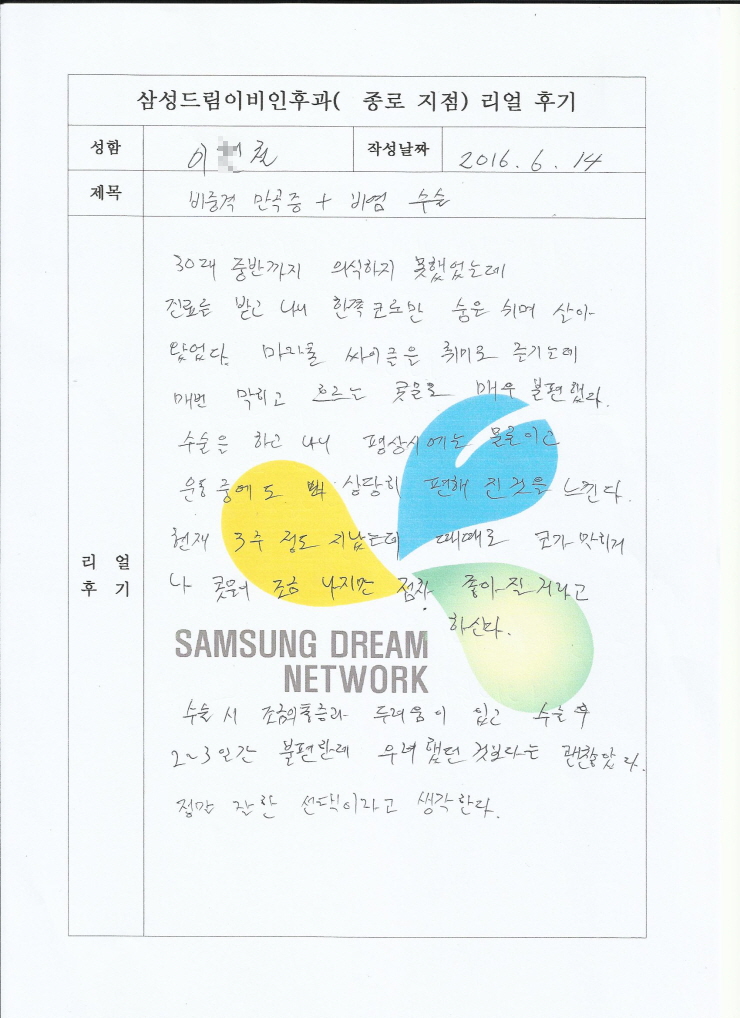 삼성드림이비인후과(  종로 지점) 리얼 후기
성함 이 철 작성날짜 2016. 6. 14
제목 비중격 만곡증 + 비염 수술
리 얼
후 기
30대 중반까지 의식하지 못했었는데
진료를 받고 나니 한쪽 코로만 숨은 쉬며 살아
왔었다. 마라톤 싸이클을 취미로 즐기는데
매번 막히고 흐르는 콧물로 매우 불편했다.
수술은 하고 나니 평상시에는 물론이고
운동중에도 상당히 편해 진것을 느낀다.
현재 3주 정도 지났는데 때때로 코가 막히거
나 콧물이 조금 나지만 점차 좋아질거라고
하신다.
SAMSUNG DREAM
NETWORK
수술 시 조금의 통증과 두려움이 있고 수술 후
2~3일간 불편한데 우려했던 것보다는 괜찮았다.
정말 잘한 선택이라고 생각한다.